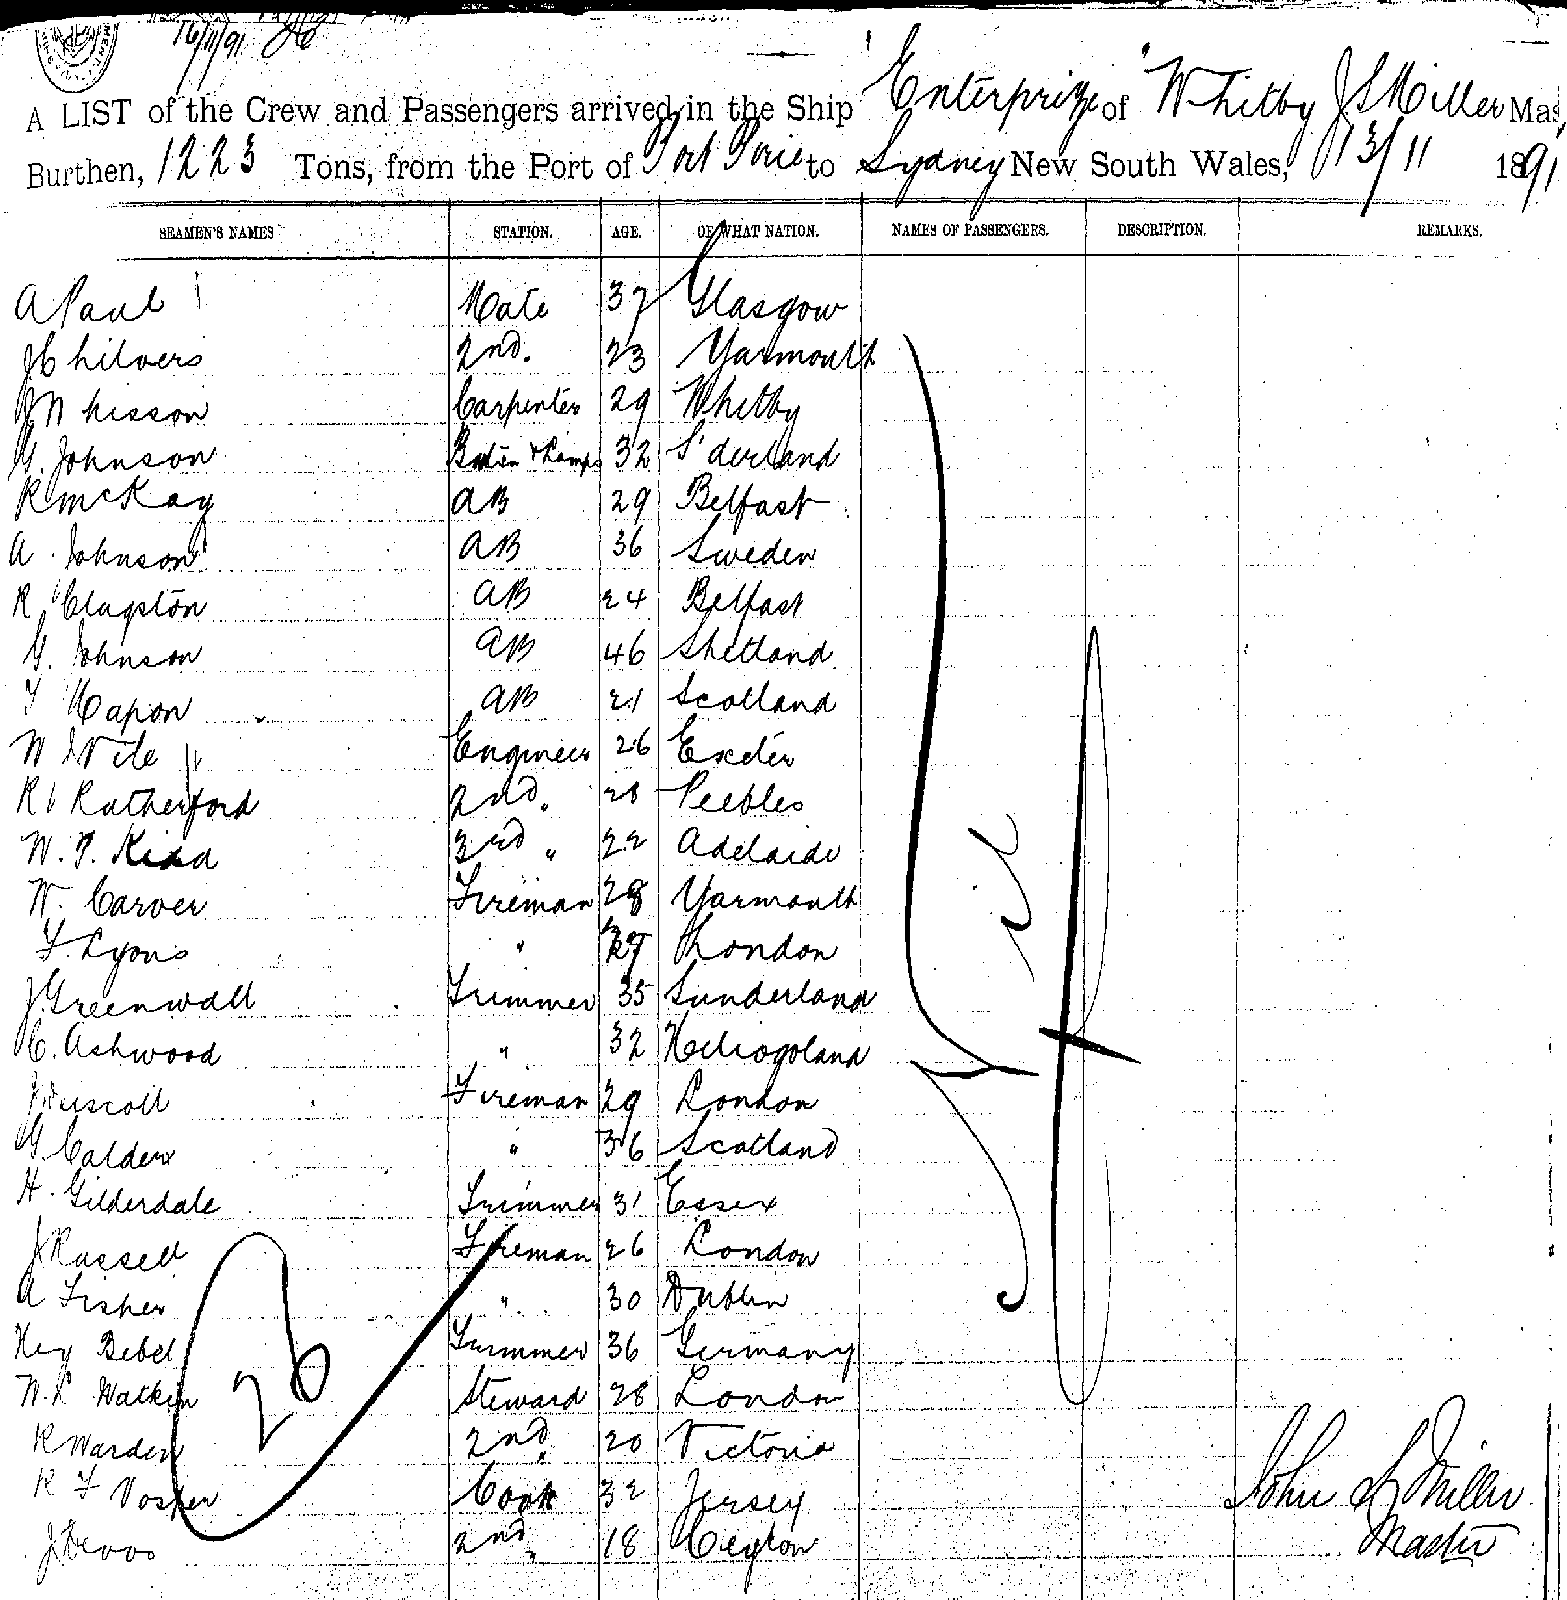 16/11/91
A LIST of the Crew and Passengers arrived in the Ship "Enterprize" of Whitby J S Miller Mas
Burthen, 1223 Tons, from the Port of Port Pirie to Sydney New South Wales, 13/11 1891
SEAMEN'S NAMES STATION. AGE. OF WHAT NATION. NAMES OF PASSENGERS. DESCRIPTION. REMARKS.
A Paul Mate 37 Glasgow
J Chilvers 2nd. 23 Yarmouth
29 Whitby Carpenter
G. Johnson 32 S'derland
R McKay AB 29 Belfast
A Johnson AB 36 Sweden
R Clagston AB 24 Belfast
G. Johnson AB 46 Shetland
Capon AB 21 Scotland
W Engineer 26 Exeter
R Rutherford 2nd " 28 Peebles
W. Kidd 3rd " 22 Adelaide
W. Carver Fireman 28 Yarmouth
F. Lyons " London
J Greenwall Trimmer 35 Sunderland
C. Ashwood " 32 Heliogoland
Driscoll Fireman 29 London
G. Calder " 36 Scotland
H. Gilderdale Trimmer 31 Essex
J Russell Fireman 26 London
A Fisher " 30 Dublin
Hy Bebel Trimmer 36 Germany
W. Watkin Steward 28 London
R Warden 2nd " 20 Victoria
R F Vosper Cook 32 Jersey
J 2nd " 18 Ceylon
Nil
26
John S Miller
Master